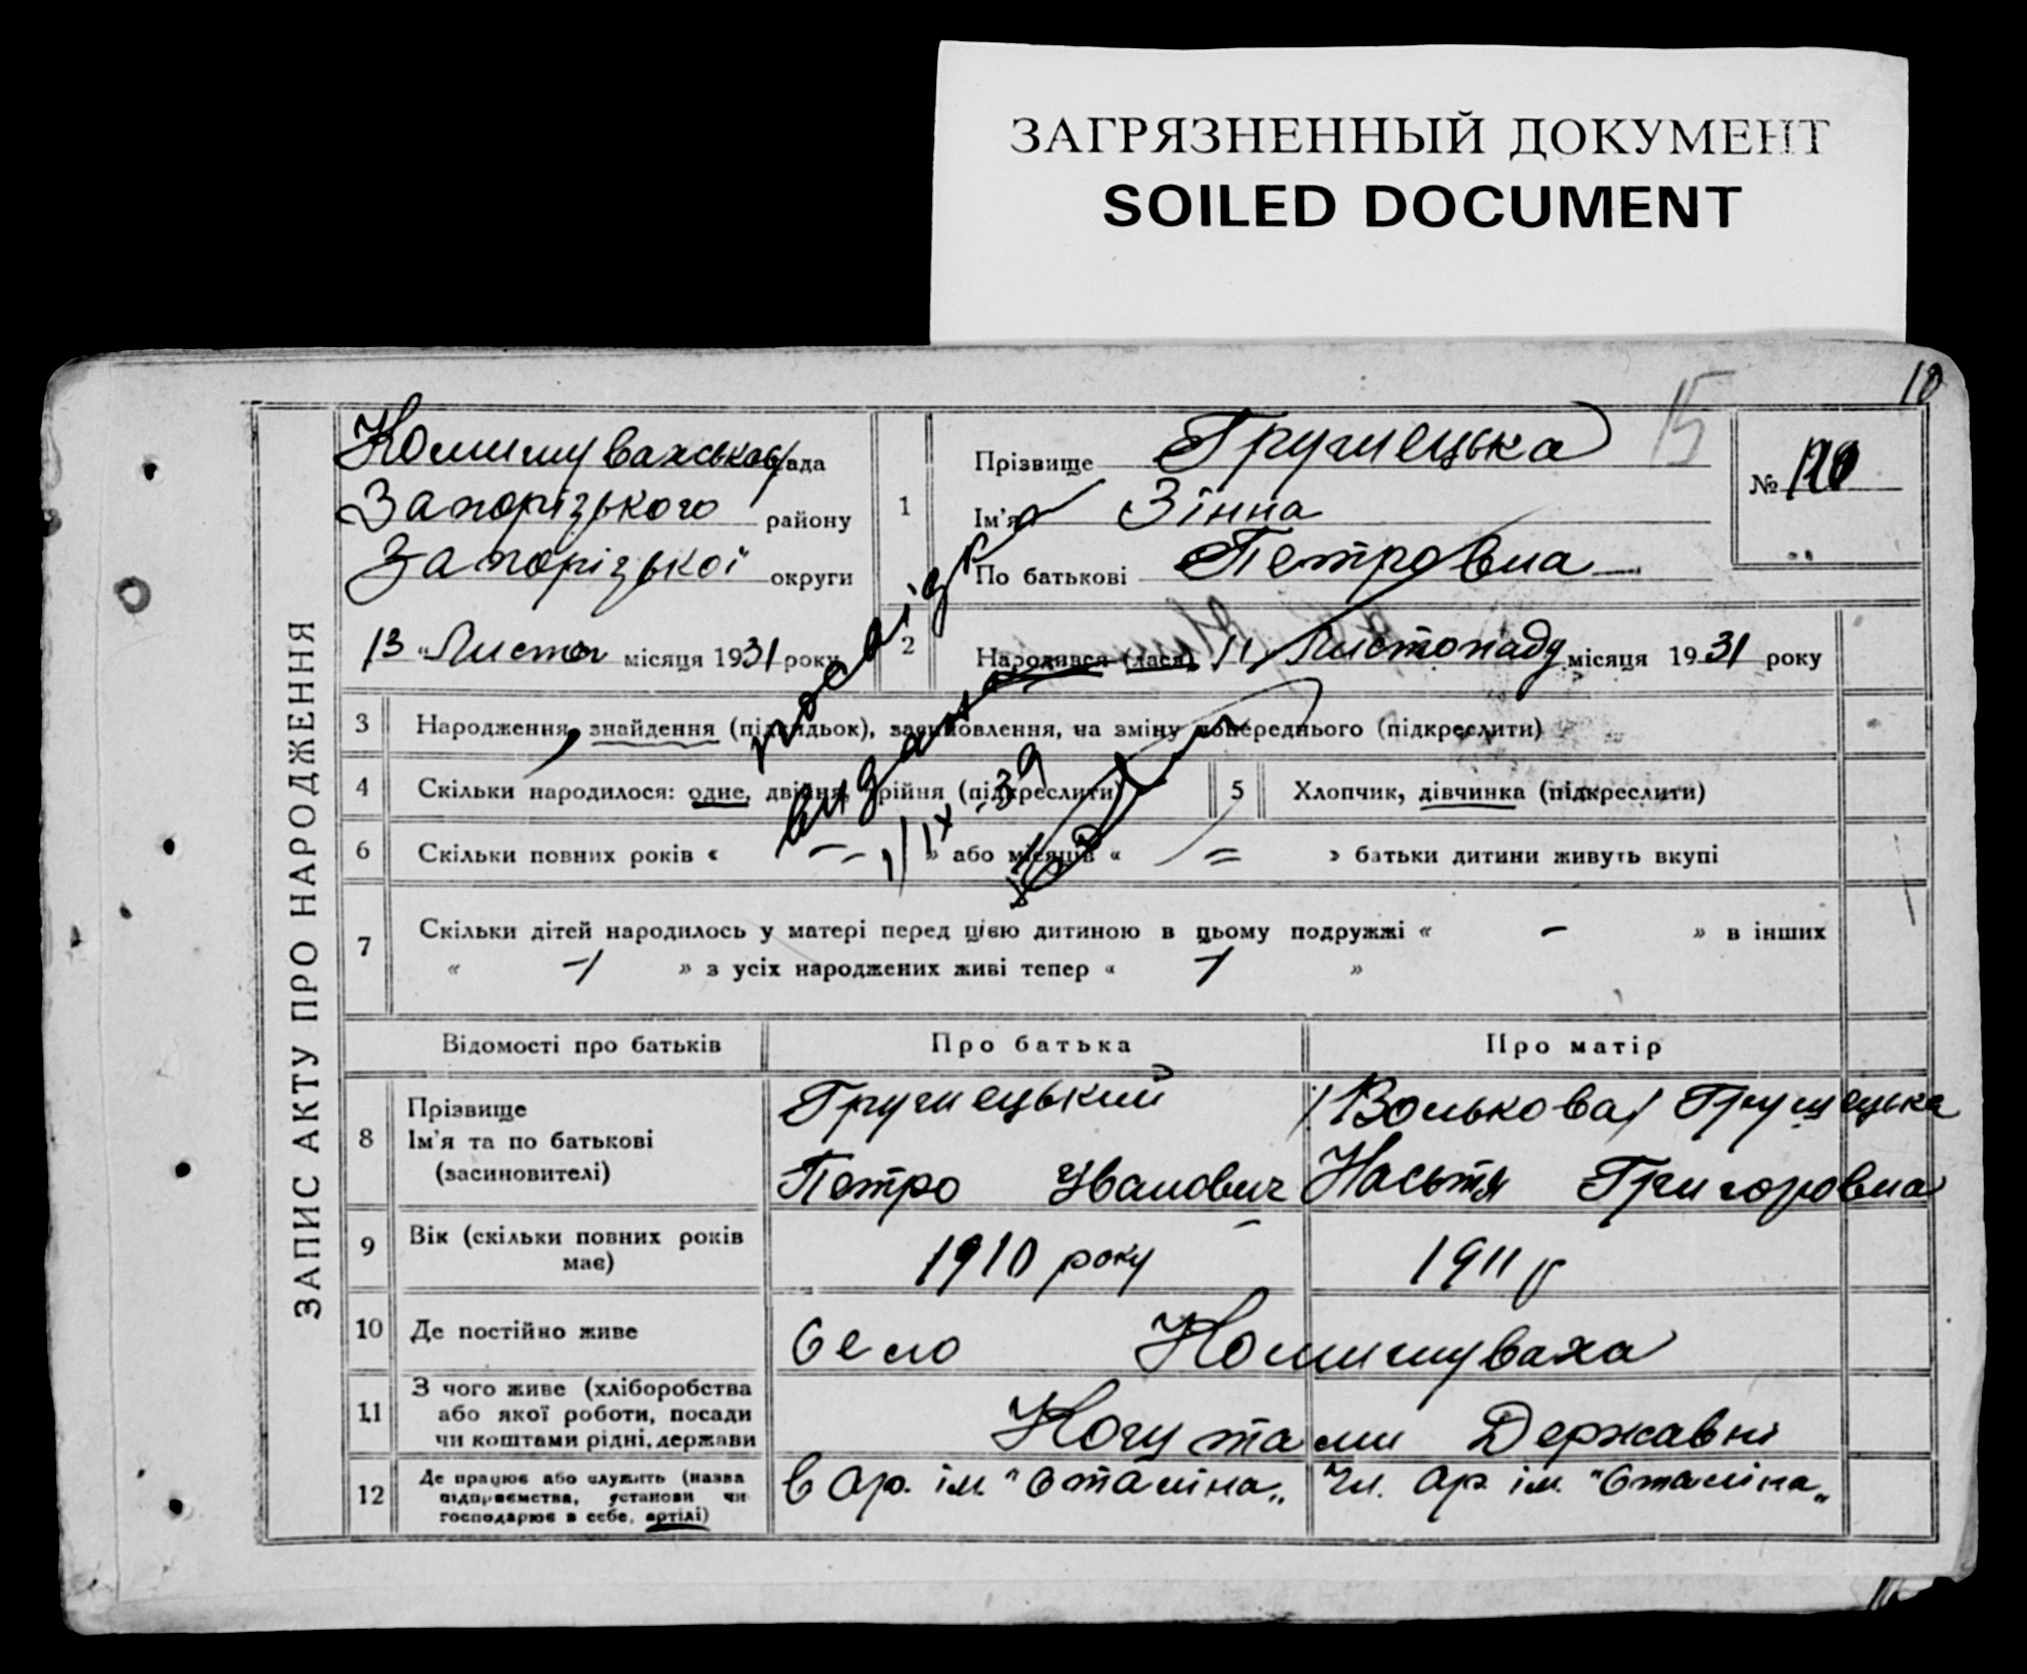 ЗАГРЯЗНЕННЫЙ ДОКУМЕНТ
SOILED DOCUMENT
15
10
ЗАПИС АКТУ ПРО НАРОДЖЕННЯ
Комишувахська рада
Запорізького району
Запорізької округи
1
Прізвище Грушецька
Ім'я Зінна
По батькові Петровна
№ 120
13 "Листоп місяця 1931 року
2
Народився (лася) 11 Листопаду місяця 1931 року
посвідка
видана
1/IX-39
3 Народження, знайдення (підкидьок), засиновлення, на зміну попереднього (підкреслити)
4 Скільки народилося: одне, двійня, трійня (підкреслити)
5 Хлопчик, дівчинка (підкреслити)
6 Скільки повних років « -- » або місяців « = » батьки дитини живуть вкупі
7 Скільки дітей народилось у матері перед цією дитиною в цьому подружжі « - » в інших
« -/ » з усіх народжених живі тепер « -/ »
Відомості про батьків Про батька Про матір
8 Прізвище
Ім'я та по батькові
(засиновителі)
Грушецький
Петро Іванович
/Волькова/ Грушецька
Насьтя Григоровна
9 Вік (скільки повних років
має)
1910 року 1911 р
10 Де постійно живе Село Комишуваха
11 З чого живе (хліборобства
або якої роботи, посади
чи коштами рідні, держави
Кочутами Державні
12 Де працює або служить (назва
підприємства, установи чи
господарює в себе, артілі)
в Ар. ім. "Сталіна„ Чл. Ар. ім. "Сталіна„